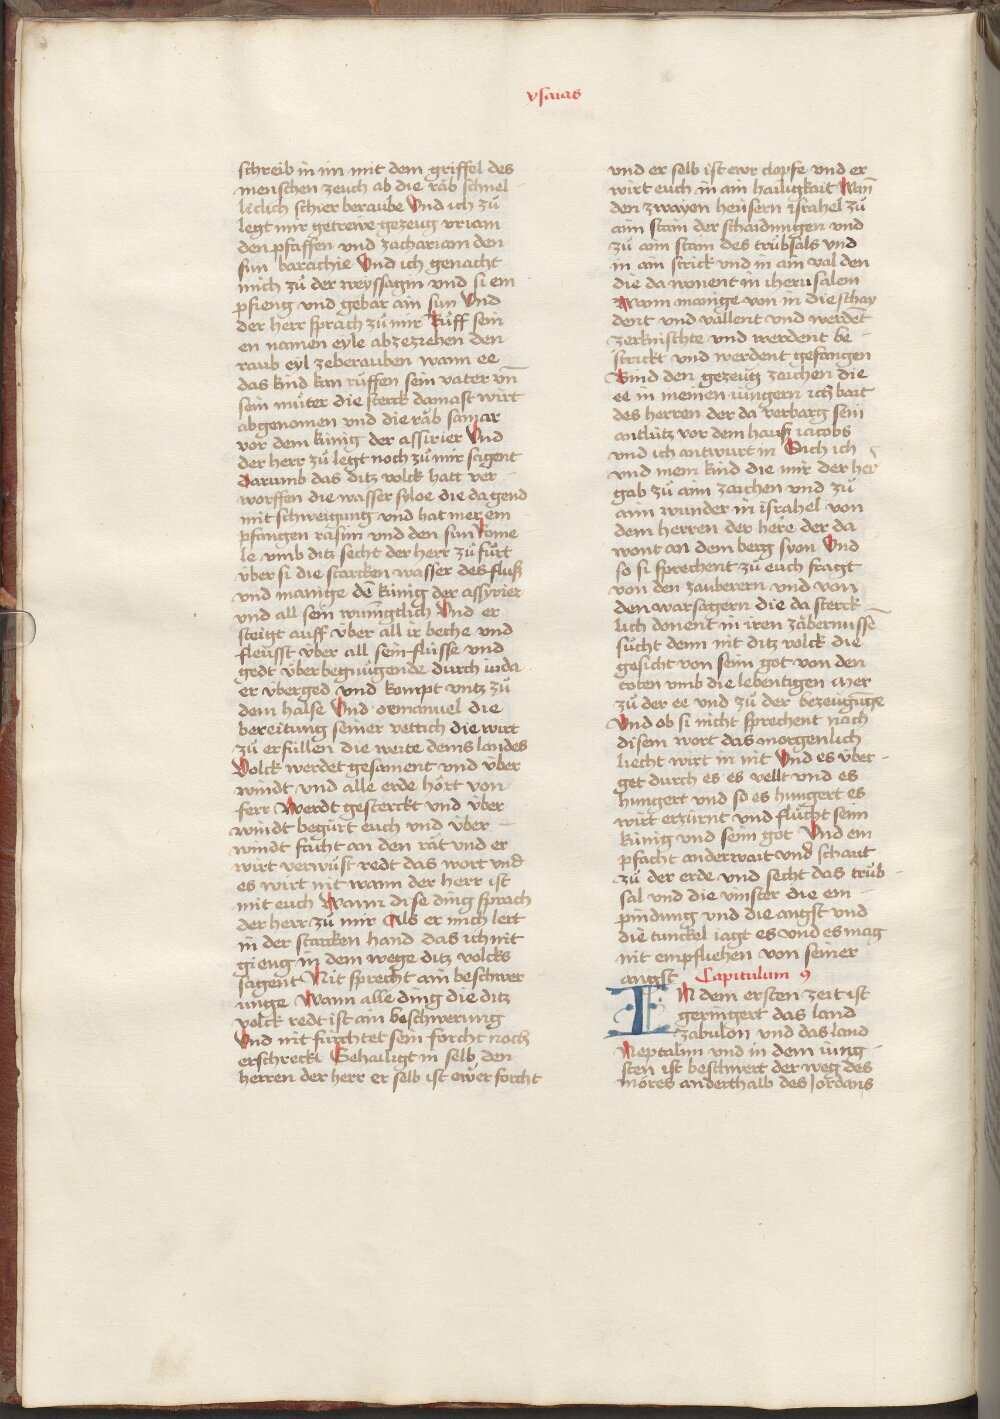 ysaias
schreib in im mit dem griffel des
menschen zeuch ab die räb schnel
liclich schier beraube Vnd ich zů
legt mir getrewe gezeug vriam
den pfaffen vnd zachariam den
sun barachie Vnd ich genacht
mich zů der weyssagin vnd si em
pfieng vnd gebar ain sun Vnd
der herr sprach zů mir Růff sein
en namen eyle abzeziehen den
raub eyl zeberauben wann ee
das kind kan rüffen sein vater vn̄
sein můter die sterck damast wirt
abgenomen vnd die räb samar
vor dem künig der assirier Vnd
der herr zů legt noch zů mir sagent
Darumb das ditz volck hatt ver
worffen die wasser syloe die da gend
mit schweigung vnd hat mer em
pfangen rasim vnd den sun rome
le vmb ditz secht der herr zů fürt
über si die starcken wasser des fluß
vnd manige dē künig der assyrier
vnd all sein wunigtlich Vnd er
steigt auff über all ir beche vnd
fleüsst über all sein flüsse vnd
gedt überbegnügende durch iuda
er überged vnd kompt vntz zů
dem halse Vnd ormanuel die
bereitung seiner vettich die wirt
zů erfüllen die weite deins landes
Volck werdet gesament vnd über
windt vnd alle erde hört von
ferr Werdt gesterckt vnd über
windt begürt euch vnd über
windt facht an den rät vnd er
wirt verwüst redt das wort vnd
es wirt nit wann der herr ist
mit euch Wann dise ding sprach
der herr zů mir Als er mich lert
in der starcken hand das ich nit
gieng in dem wege ditz volcks
sagent Nit sprecht ain beschwer
unge Wann alle ding die ditz
volck redt ist ain beschwerung
Vnd nit fürchtet sein forcht noch
erschreckt Gehailigt in selb den
herren der herr er selb ist ewer forcht
vnd er selb ist ewr clopfe vnd er
wirt euch in ain hailigkait Wan̄
den zwayen heüsern israhel zů
aim stain der schaidungen vnd
zů aim stain des trübsals vnd
in ain strick vnd in ain val den
die da wonent in iherusalem
Wann manige von in die schay
dent vnd vallent vnd werdēt
zerknischte vnd werdent be
strickt vnd werdent gefangen
Bind den gezeüg zaichen die
ee in meinen iüngern ich bait
des herren der da verbarg sein
antlütz vor dem hauß iacobs
vnd ich antwurt in Sich ich
vnd mein kind die mir der her
gab zů aim zaichen vnd zů
aim wunder in israhel von
dem herren der here der da
wont an dem berg syon Vnd
so si sprechent zů euch fragt
von den zauberern vnd von
den warsagern die da sterck
lich donent in iren zäbernisse
sůcht denn nit ditz volck die
gesicht von seim got von den
toten vmb die lebentigen Mer
zů der ee vnd zů der bezeugunge
Vnd ob si nicht sprechent nach
disem wort das morgenlich
liecht wirt in nit Vnd es über
get durch es es vellt vnd es
hungert vnd so es hungert es
wirt erzürnt vnd flůcht seim
künig vnd seim got Vnd em
pfacht anderwait vnd schaut
zů der erde vnd secht das trüb
sal vnd die vinster die em
pindung vnd die angst vnd
die tunckel iagt es vnd es mag
nit empfliehen von seiner
angst Capitulum 9
IN dem ersten zeit ist
geringert das land
zabulon vnd das land
Neptalim vnd in dem iung
sten ist beschwert der weg des
möres anderthalb des Jordans